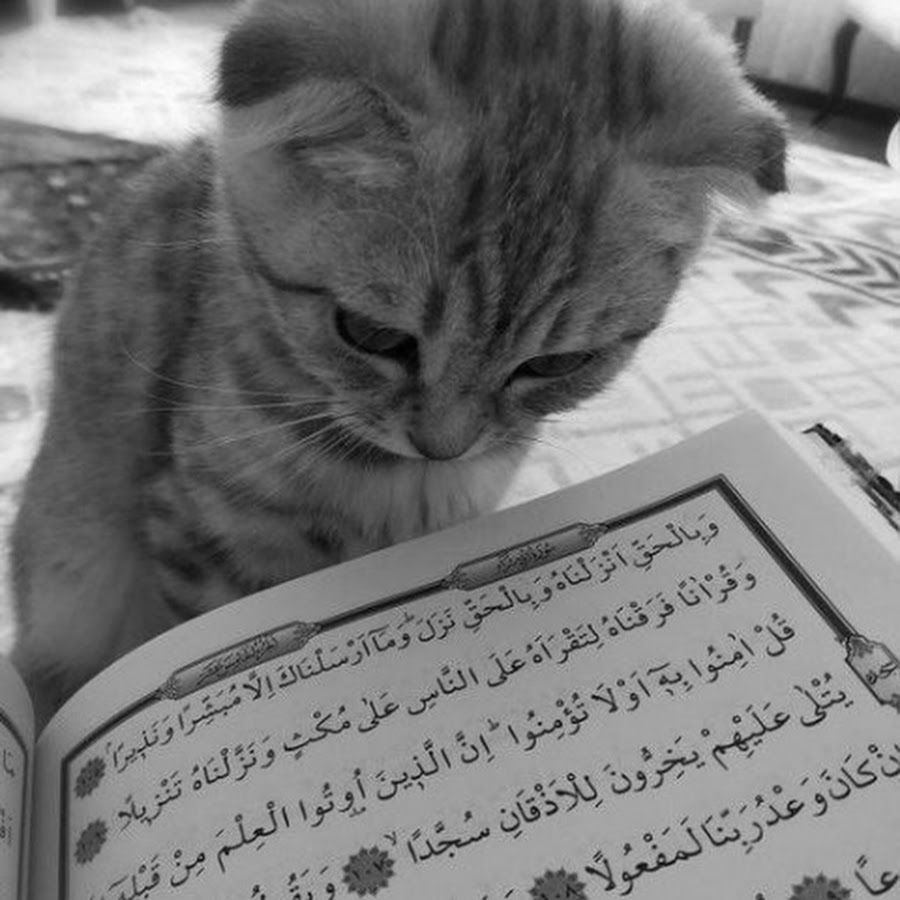 وَبِالْحَقِّ اَنْزَلْنَاهُ وَبِالْحَقِّ نَزَلَۜ وَمَٓا اَرْسَلْنَاكَ اِلَّا مُبَشِّرًا وَنَذ۪يرًاۢ
وَقُرْاٰنًا فَرَقْنَاهُ لِتَقْرَاَهُ عَلَى النَّاسِ عَلٰى مُكْثٍ وَنَزَّلْنَاهُ تَنْز۪يلًا
قُلْ اٰمِنُوا بِه۪ٓ اَوْ لَا تُؤْمِنُواۜ اِنَّ الَّذ۪ينَ اُو۫تُوا الْعِلْمَ مِنْ قَبْلِه۪ٓ
يُتْلٰى عَلَيْهِمْ يَخِرُّونَ لِلْاَذْقَانِ سُجَّدًاۙ ١٠٧
كَانَ وَعْدُ رَبِّنَا لَمَفْعُولًا ١٠٨